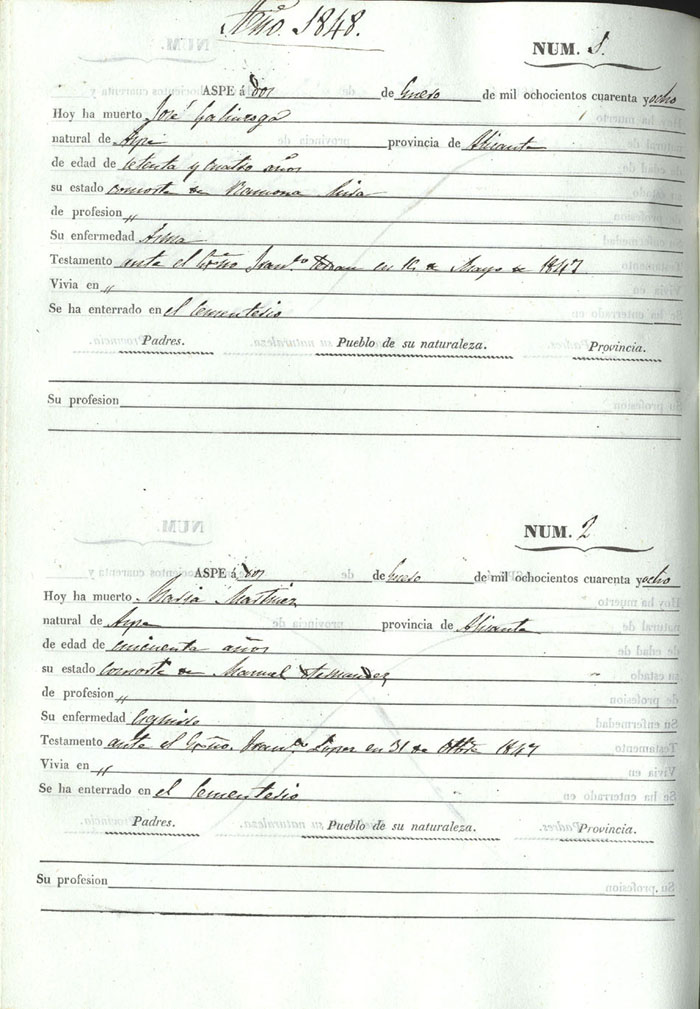 Año. 1848.
NUM. 1.
ASPE á dos de Enero de mil ochocientos cuarenta y ocho
Hoy ha muerto José Galinsoga
natural de Aspe provincia de Alicante
de edad de setenta y cuatro años
su estado consorte de Ramona Mira
de profesion "
Su enfermedad Asma
Testamento ante el Esño Fran.co en de Mayo de 1847
Vivia en "
Se ha enterrado en el Cementerio
Padres. Pueblo de su naturaleza. Provincia.
Su profesion
NUM. 2
ASPE á dos de Enero de mil ochocientos cuarenta y ocho
Hoy ha muerto Maria Martinez
natural de Aspe provincia de Alicante
de edad de cincuenta años
su estado consorte de Manuel Hernandez
de profesion "
Su enfermedad
Testamento ante el Esño. Fran.co Lopez en 31 de Obre 1847
Vivia en "
Se ha enterrado en el Cementerio
Padres. Pueblo de su naturaleza. Provincia.
Su profesion